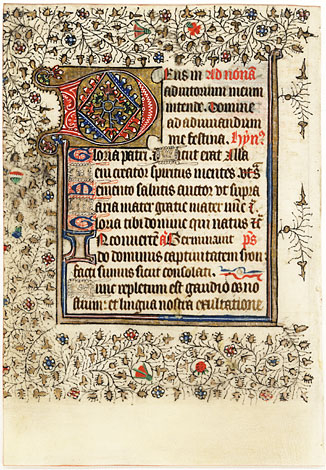 Deus in Ad nona
adiutorium meum
intende. Domine
ad adiuuandum
me festina. Hỹn9
Gloria pater. Sicut erat. Alla
eni creator spiritus mentes. vt sͣ
Memento salutis auctor vt supra
aria mater gratie mater mic
Gloria tibi domine qui natus es
In conuertẽ añ Germinauit ps
do dominus captiuitatem syon
facti sumus sicut consolati.
unc repletum est gaudio os no
strum: et lingua nostra exultatione